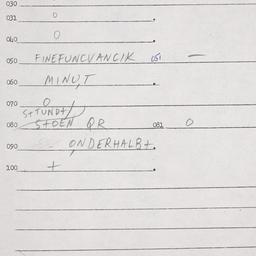 030
031 0
040 0
050 FINEFUNCVANCIK 051 —
060 MINU,T
070 0
STTUNDT/
080 STOEN QR 081 0
090 ONDERHALBT.
100 +